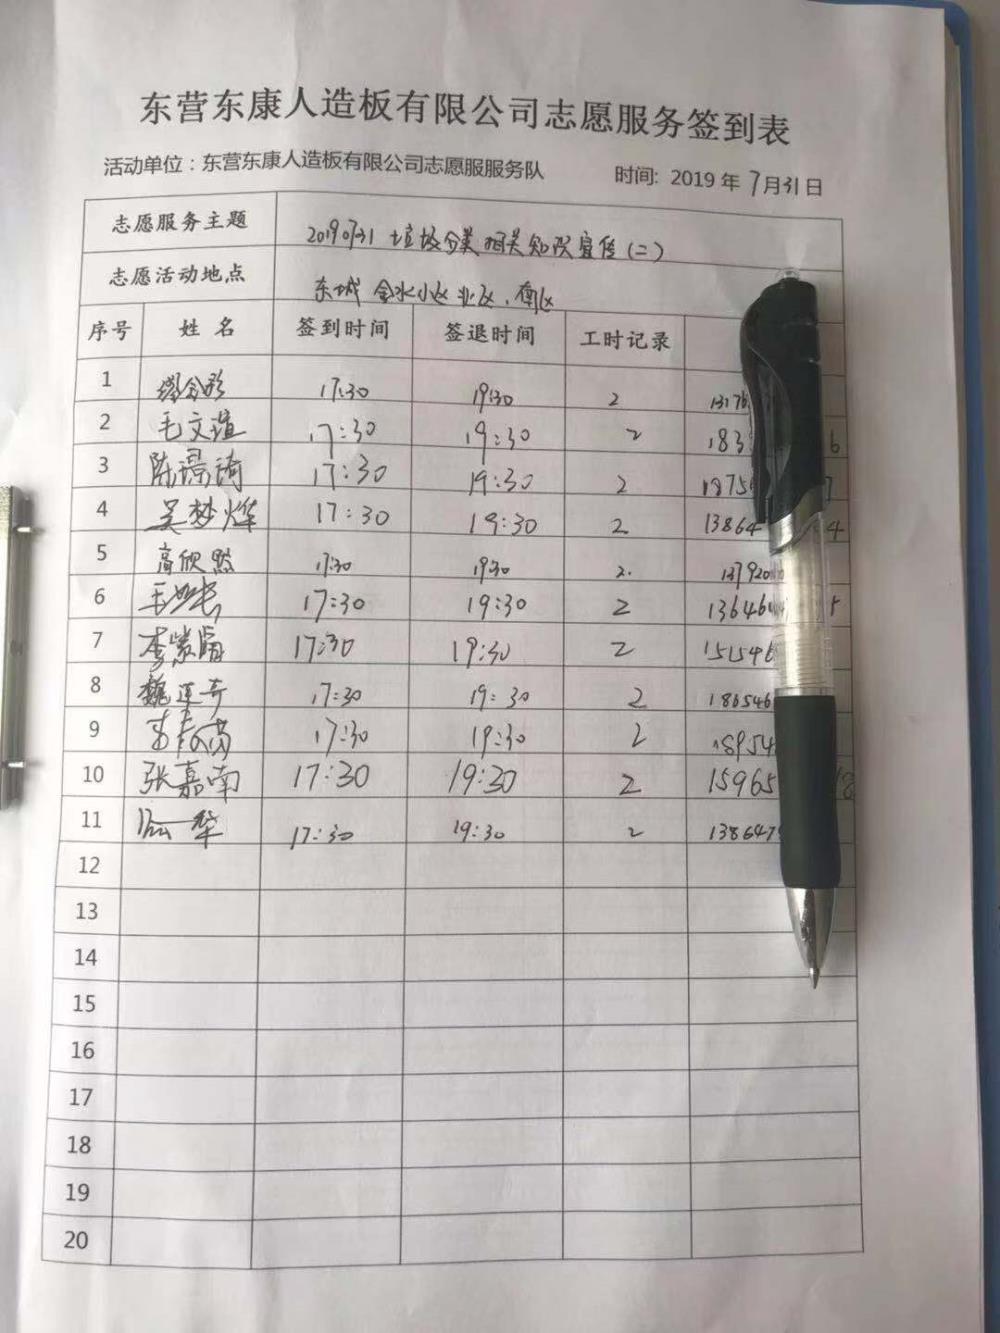 东营东康人造板有限公司志愿服务签到表
活动单位：东营东康人造板有限公司志愿服服务队 时间: 2019 年 7月31日
志愿服务主题 20190731 垃圾分类相关知识宣传(二)
志愿活动地点 东城 金水小区北区、南区
序号 姓 名 签到时间 签退时间 工时记录
1 17:30 19:30 2 1317
2 毛文谊 17:30 19:30 2 183 6
3 陈璟琦 17:30 19:30 2 1875
4 吴梦烨 17:30 19:30 2 13864 4
5 高欣 17:30 19:30 2. 137920
6 17:30 19:30 2 13646
7 李紫 17:30 19:30 2 151546
8 魏 17:30 19:30 2 186546
9 17:30 19:30 2 18954
10 张嘉南 17:30 19:30 2 15965
11 17:30 19:30 2 138647
12
13
14
15
16
17
18
19
20